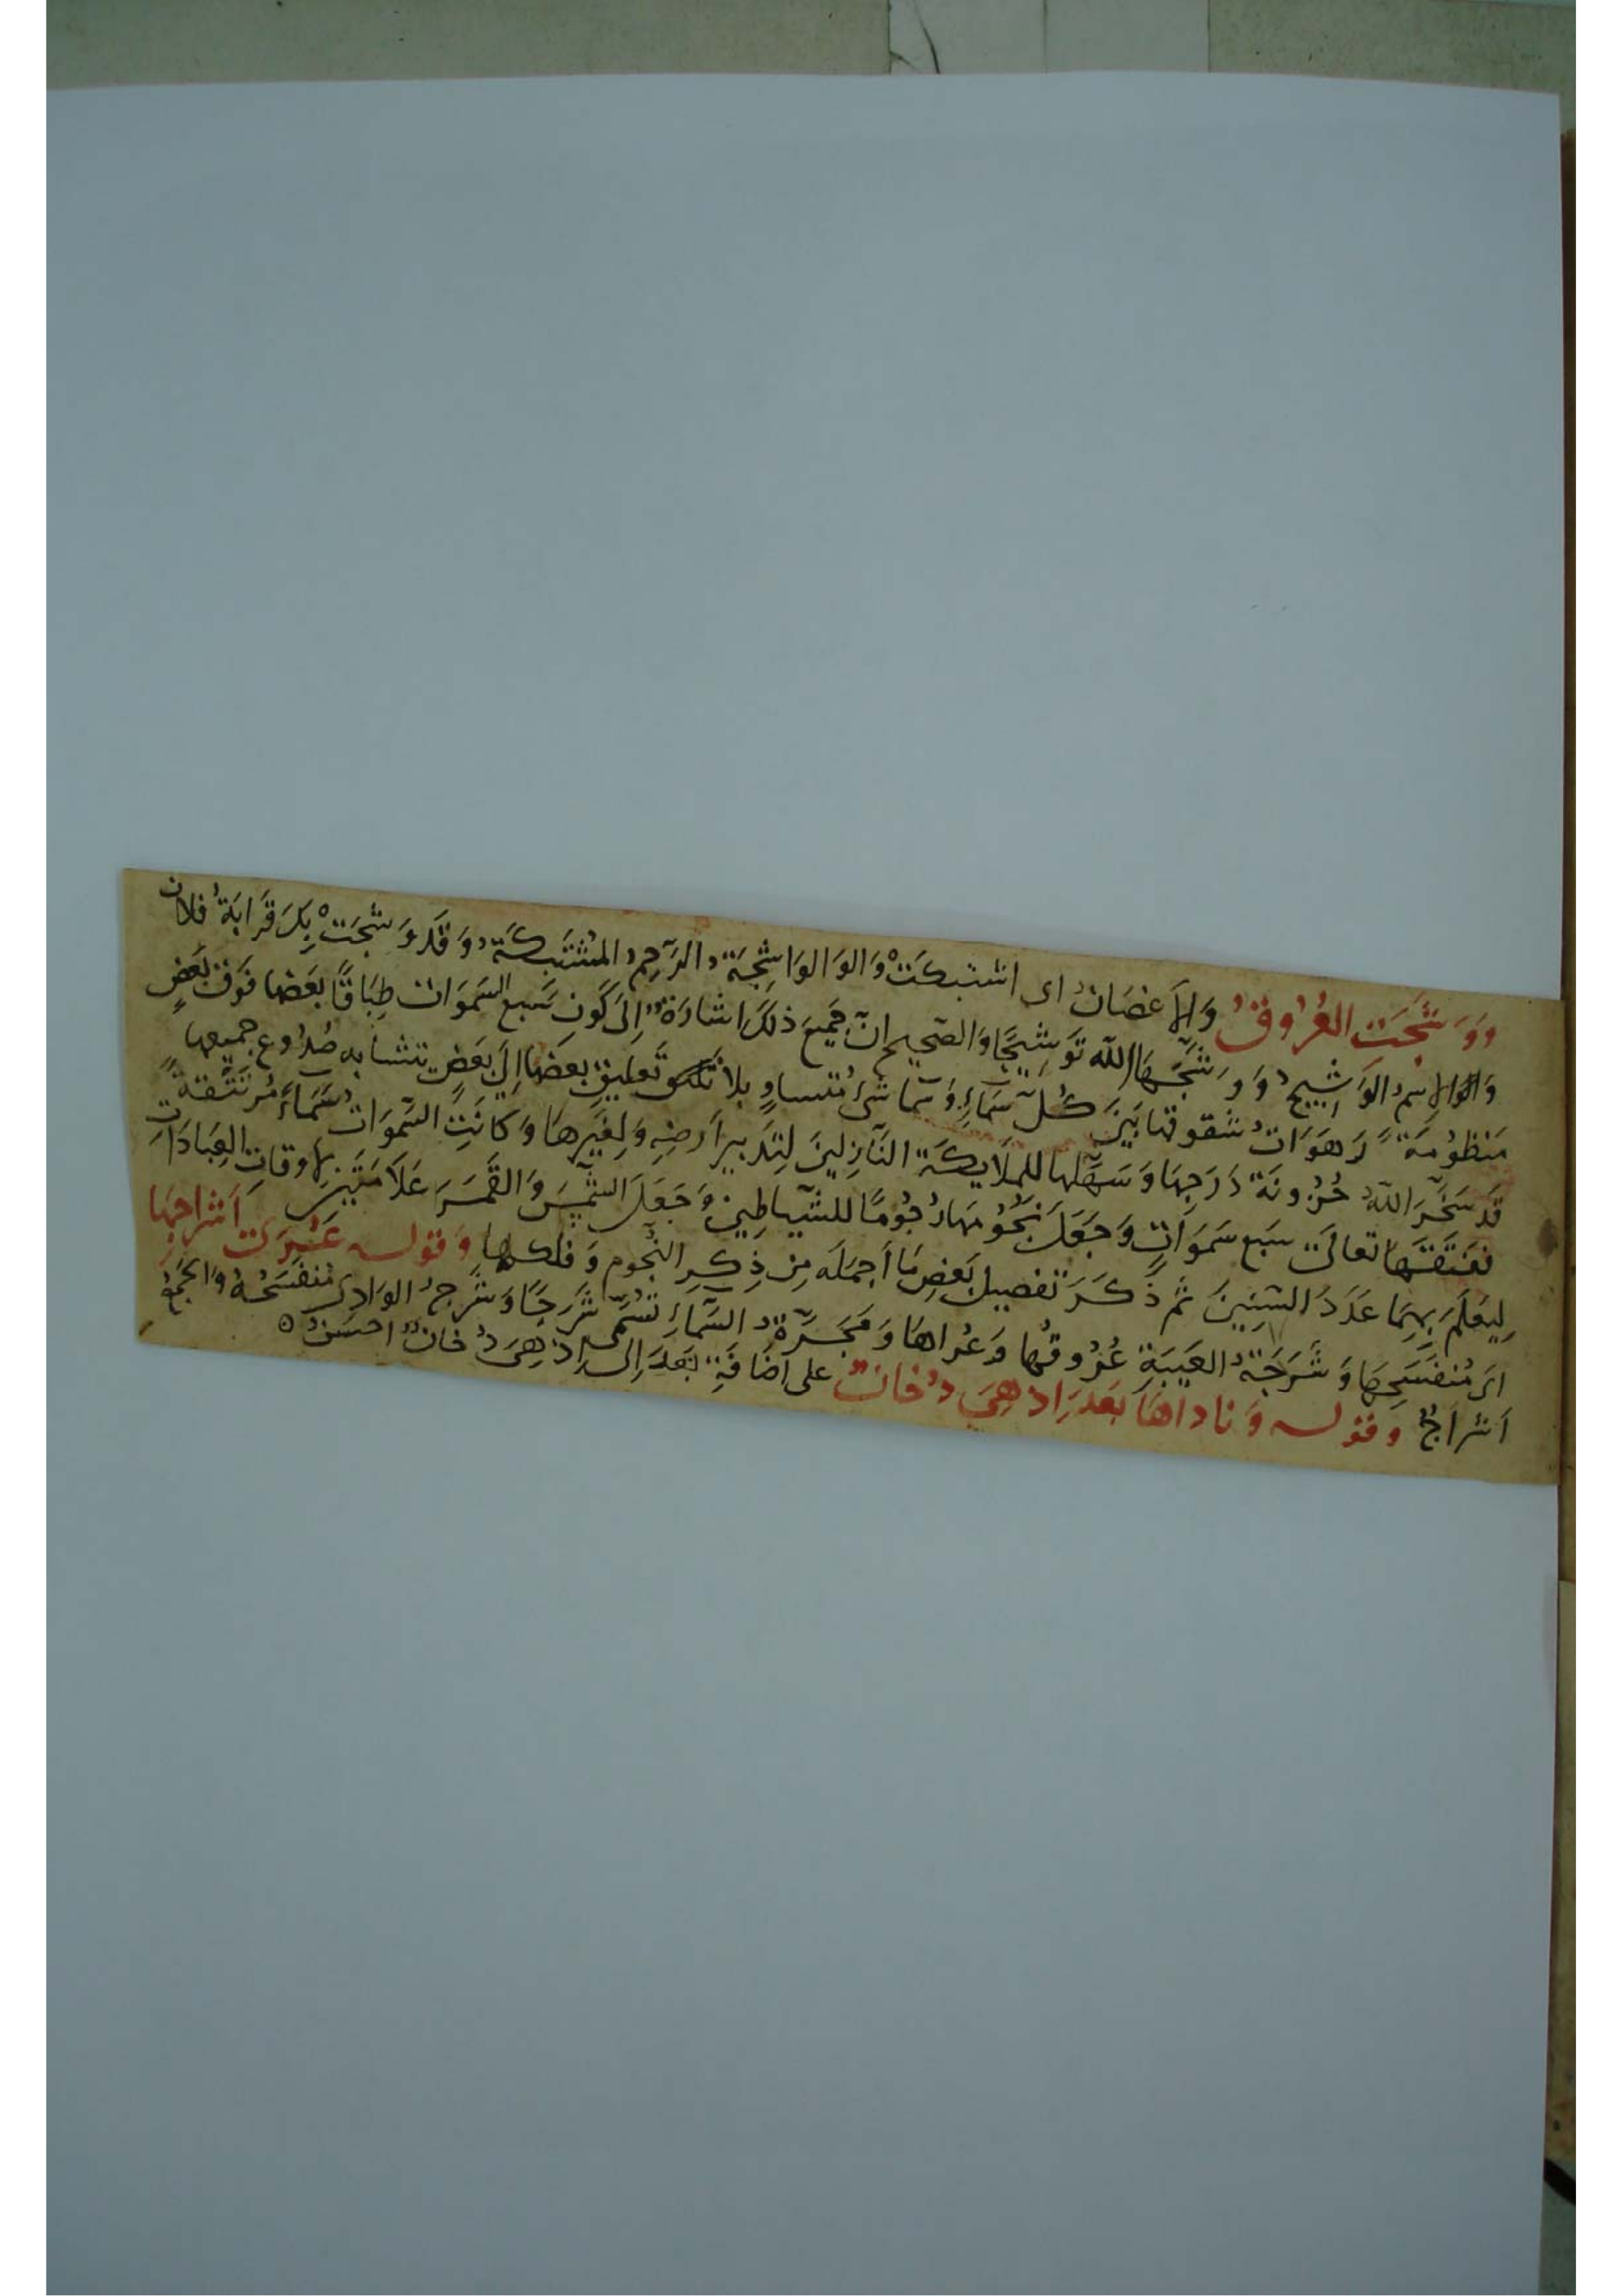 وَوَشَجَتِ العُرُوقُ وَالأَغصَانُ اى اشتبكَتْ وَالوَالوَاشِجَةُ الرَّحِمُ المُشْتَبِكَةُ وَقَد وَشَجَتْ بِكَ قَرَابَةُ فلان
وَالاِسمُ الوَشِيجُ وَوَشَّجَهَا اللّه تَوشِيجًا وَالصَّحِيح انّ جَمِيعَ ذلكَ اشَارَةٌ إلى كَونِ سَبعِ السَمَوَات طِبَاقًا بَعضها فَوقَ بَعضٍ
مَنظُومَةً رَهَوَاتُ شقوقها بَينَ كُلّ سَمَاءٍ وَسَمَا شىءٌ مُتَساوٍ بلا تَعلِيقِ بعَضها إلى بَعَضٍ يتشابه صُدُوع جميعها
قَد سَخَّرَ اللّهُ حُزُونَةَ دَرَجِهَا وَسَهَّلها للملَايكَةِ النَّازِلينَ لِتَدبيرِ أَرضِهِ وَلِغَيرِهَا وَكانَتِ السَّمَوَاتُ سَمَاءً مُرتَتِقَةً
ففَتَقَهَا تعالَى سَبع سَمَوَاتٍ وَجَعَلَ نجُومَهَا رُجُومًا للشّيَاطِينِ وَجَعَلَ الشَّمسَ وَالقَمَرَ عَلَامَتَينِ لاوقاتِ العِبَادَاتِ
لِيُعلَمَ بِهِمَا عَدَدَ السّنِينَ ثُمّ ذَكَرَ تفصِيلَ بَعضِ مَا أَجمَلَه مِن ذِكرِ النُّجومِ وَفلكها وَقوله عَنبرَت أَشرَاجِهَا
اىَ مُنفَسَحِهَا وَشَرَجَةُ العَيبَةِ عُرُوقُها وَعُراهَا وَمَجَرَّةُ السَّمَاءِ تُسَمَّى شَرَجًا وَشَرَجُ الوَادِى مُنفَسَحُهُ وَالجَمعُ
أَشرَاجٌ وقوله وَنادَاهَا بَعدَ إِذ هِىَ دُخَانٌ على اضَافَةِ بَعدَ إِلى إِذ هِىَ دُخَانٌ احسَنُ ه